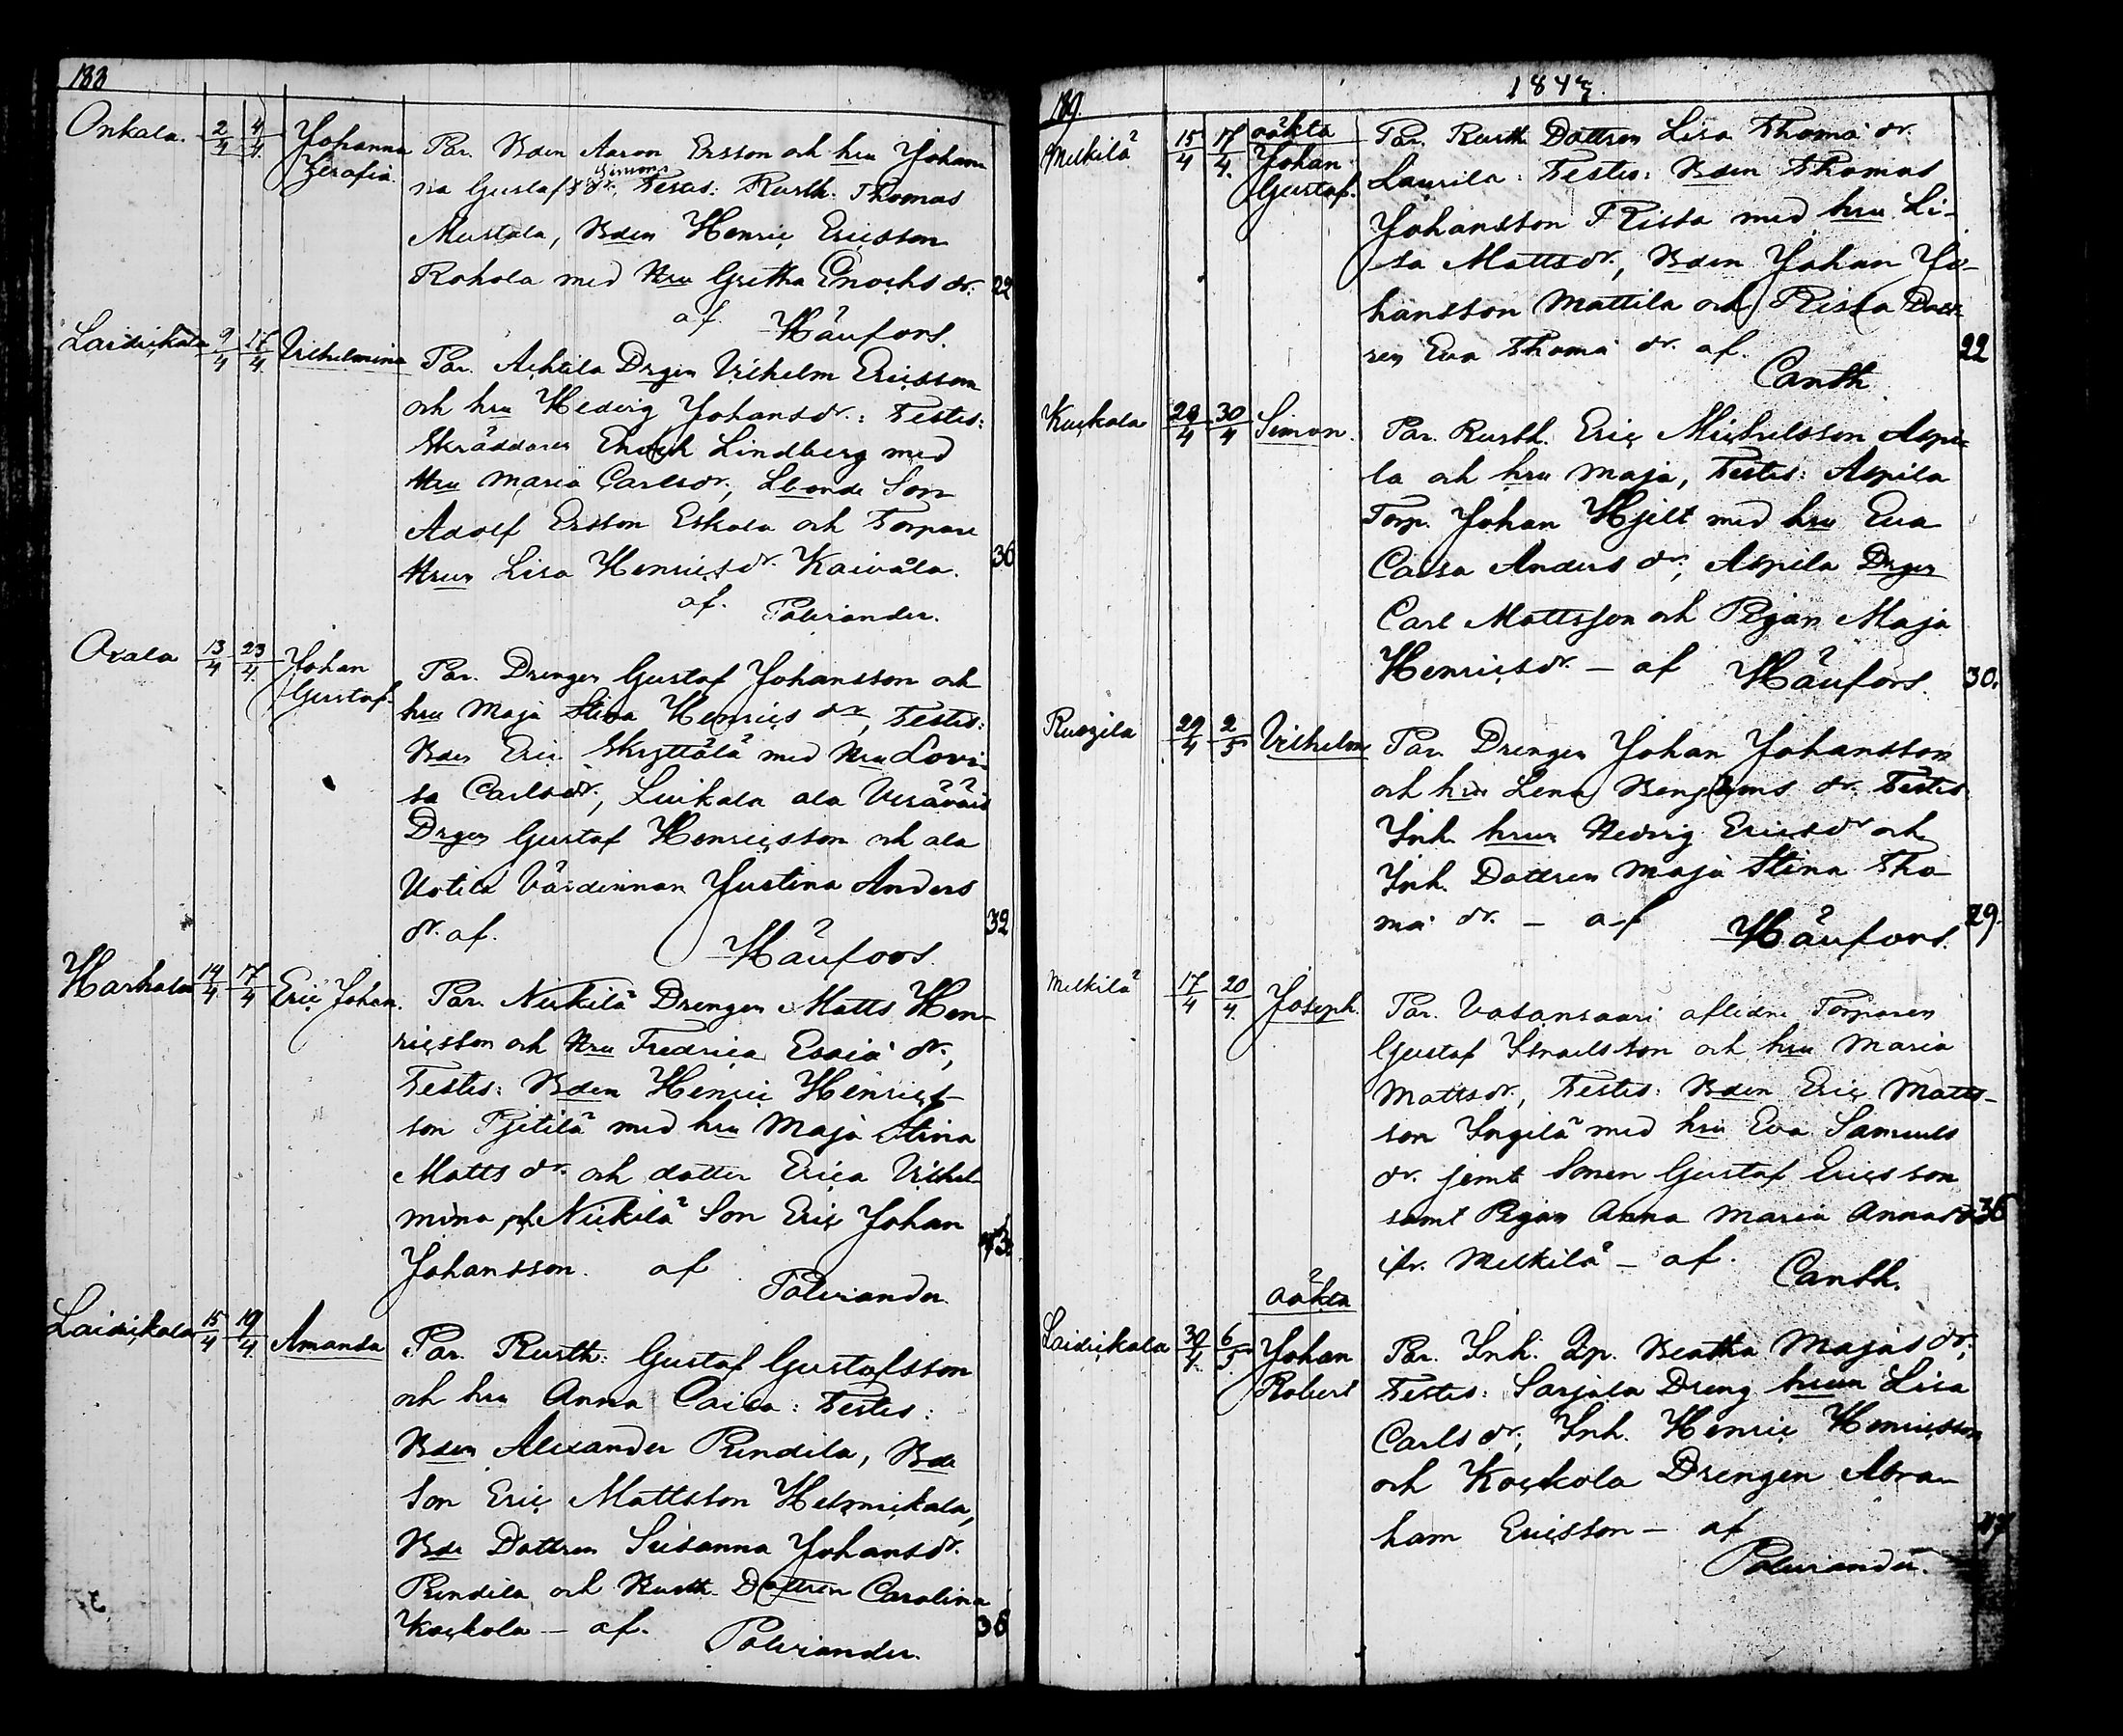 188
Onkala. 2/4 4/4 Johanna Par. Bden Aaron Ersson och hru Johan
Zerafia. na Gustafs dr. Testes: Rusth. Thomas
Simons
Mustala, Bden Henric Ericsson
Rohola med Hru Gretha Enochs dr. 22
af. Häufors.
Laidickala 9/4 17/4 Vilhelmina Par. Achtila Drgen Vilhelm Ericsson
och hru Hedvig Johansdr.: Testes:
Skräddaren Enoch Lindberg med
Hru Maria Carlsdr., Lbonde Son
Adolf Ersson Eskola och Torpare
Hrun Lisa Henricsdr. Kaivola. 36
af. Polviander.
Oxala 13/4 23/4 Johan Par. Drengen Gustaf Johansson och
Gustaf. hru Maja Stina Henrics dr., Testes:
Bden Eric Skyttälä med Hru Lovi-
sa Carlsdr., Luikala ala
Drgen Gustaf Henricsson och ala
Uotila Värdinnan Justina Anders
dr. af. 32
Häufors.
Harhala 14/4 17/4 Eric Johan. Par. Nickilä Drengen Matts Hen-
ricsson och Hru Fredrica Esaiä dr.,
Testes: Bden Henric Henrics-
son Pjetilä med hru Maja Stina
Matts dr. och dotter Erica Vilhel-
mina, Nickilä Son Eric Johan
Johansson. af
Polviander.
Laidickala 15/4 19/4 Amanda Par. Rusth: Gustaf Gustafsson
och hru Anna Caisa: Testes:
Bden Alexander Rendila, Bde
Son Eric Mattsson
Bde Dottren Susanna Johansdr.
Rendila och Rusth. Dottren Carolina
Kockola – af. 36
Polviander.
189. 1843.
Melkilä 15/4 17/4 oäkta Par. Rusth Dottren Lisa Thomä dr.
Johan Laurila: Testes: Bden Thomas
Gustaf. Johansson Rista med hru Li-
sa Mattsdr., Bden Johan Jo-
hansson Mattila och Rista Dott-
ren Eva Thomä dr. af. 22
Canth
Kuckala 28/4 30/4 Simon. Par. Rusth. Eric Michelsson Aspi-
la och hru Maja, Testes: Aspila
Torp. Johan Hjelt med hru Eva
Caisa Anders dr., Aspila Drgen
Carl Mattsson och Pigan Maja
Henricsdr. – af Häufors. 30.
Ruogila 29/4 2/5 Vilhelm Par. Drengen Johan Johansson
och hru Lena Bengtsons dr. Testes:
Inh. hrun Hedvig Ericsdr och
Inh. Dottren Maja Stina Tho-
mä dr. – af Häufors. 29.
Melkilä 17/4 20/4 Joseph. Par. Vatansaari aflidne Torparen
Gustaf Israelsson och hru Maria
Mattsdr., Testes: Bden Eric Matts-
son Ingilä med hru Eva Samuels
dr. jemt Sonen Gustaf Ericsson
samt Pigan Anna Maria Annasdr. 36
ifr. Melkilä – af. Canth.
oäkta
Laidickala 30/4 6/5 Johan Par. Inh. Qp. Beatha Majas dr.,
Robert Testes: Sarjala Dreng hrun Lisa
Carls dr., Inh. Henric Henricsson
och Kockola Drengen Abra-
ham Ericsson – af
Polviander.